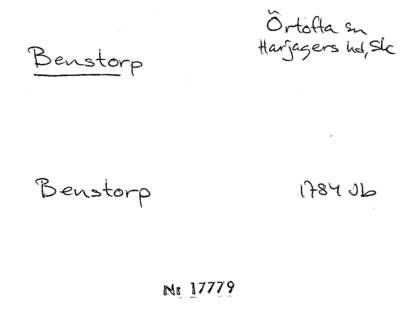 Örtofta sn
Benstorp
Harjagers hd, Sk
Benstorp 1784 Jb
Nr 17779